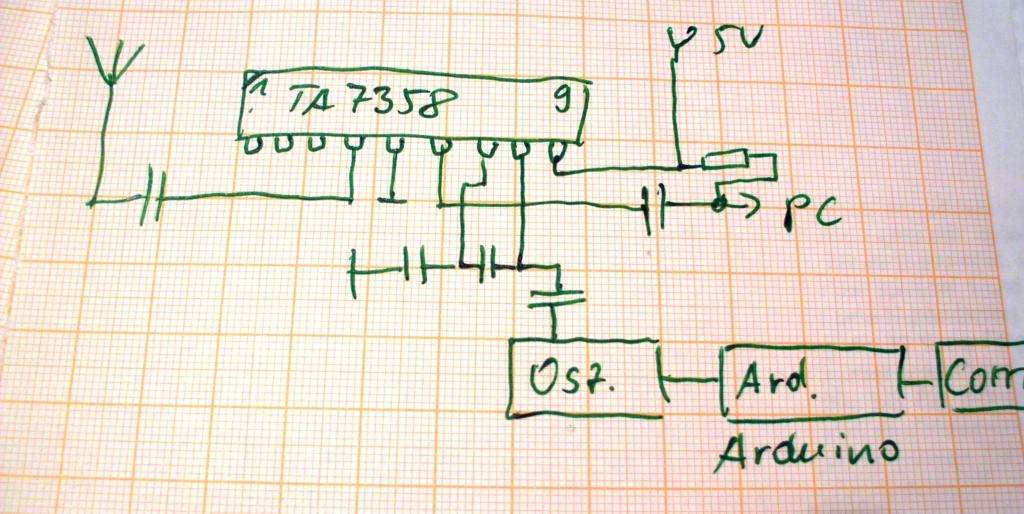 5V
1 TA7358 9
PC
Osz. Ard. Com
Arduino